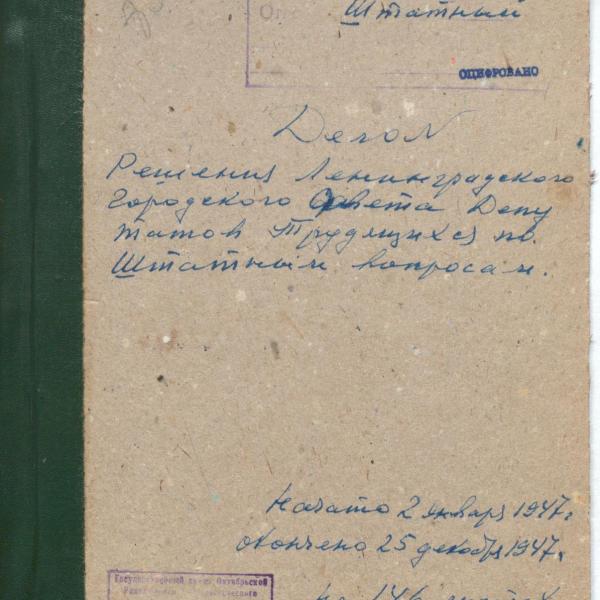 Штатный
ОЦИФРОВАНО
Дело N
Решения Ленинградского
Городского Совета Депу
татов Трудящихся по
Штатным вопросам.
Начато 2 января 1947г
окончено 25 декабря 1947г.
Государственный архив Октябрьской
на 146 листах